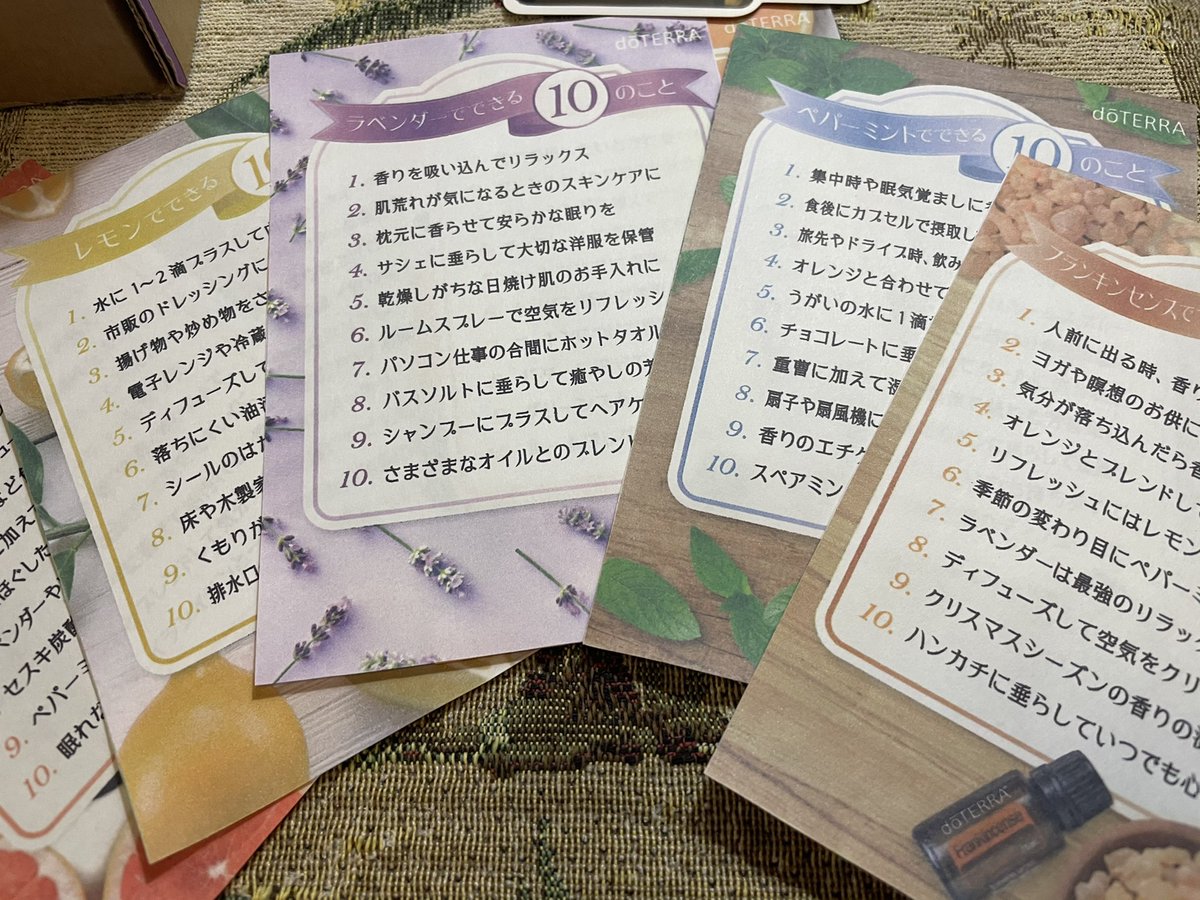 ュー
ほど
に加え
ほぐした
ベンダーや
セスキ炭酸
9. ペパーミ
10. 眠れな
レモンでできる 10
1. 水に1〜2滴プラスして
2. 市販のドレッシングに
3. 揚げ物や炒め物をさ
4. 電子レンジや冷蔵
5. ディフューズして
6. 落ちにくい油
7. シールのはが
8. 床や木製家
9. くもりが
10. 排水口
dōTERRA
ラベンダーでできる10のこと
1. 香りを吸い込んでリラックス
2. 肌荒れが気になるときのスキンケアに
3. 枕元に香らせて安らかな眠りを
4. サシェに垂らして大切な洋服を保管
5. 乾燥しがちな日焼け肌のお手入れに
6. ルームスプレーで空気をリフレッシ
7. パソコン仕事の合間にホットタオル
8. バスソルトに垂らして癒やしの
9. シャンプーにプラスしてヘアケ
10. さまざまなオイルとのブレンド
dōTERRA
dōTERRA
ペパーミントでできる10のこと
1. 集中時や眠気覚ましに
2. 食後にカプセルで摂取し
3. 旅先やドライブ時、飲み
4. オレンジと合わせて
5. うがいの水に1滴
6. チョコレートに垂
7. 重曹に加えて
8. 扇子や扇風機に
9. 香りのエチケ
10. スペアミン
フランキンセンスで
1. 人前に出る時、香
2. ヨガや瞑想のお供に
3. 気分が落ち込んだら香
4. オレンジとブレンドして
5. リフレッシュにはレモン
6. 季節の変わり目にペパーミ
7. ラベンダーは最強のリラッ
8. ディフューズして空気をクリ
9. クリスマスシーズンの香りの
10. ハンカチに垂らしていつでも心
dōTERRA
Frankincense